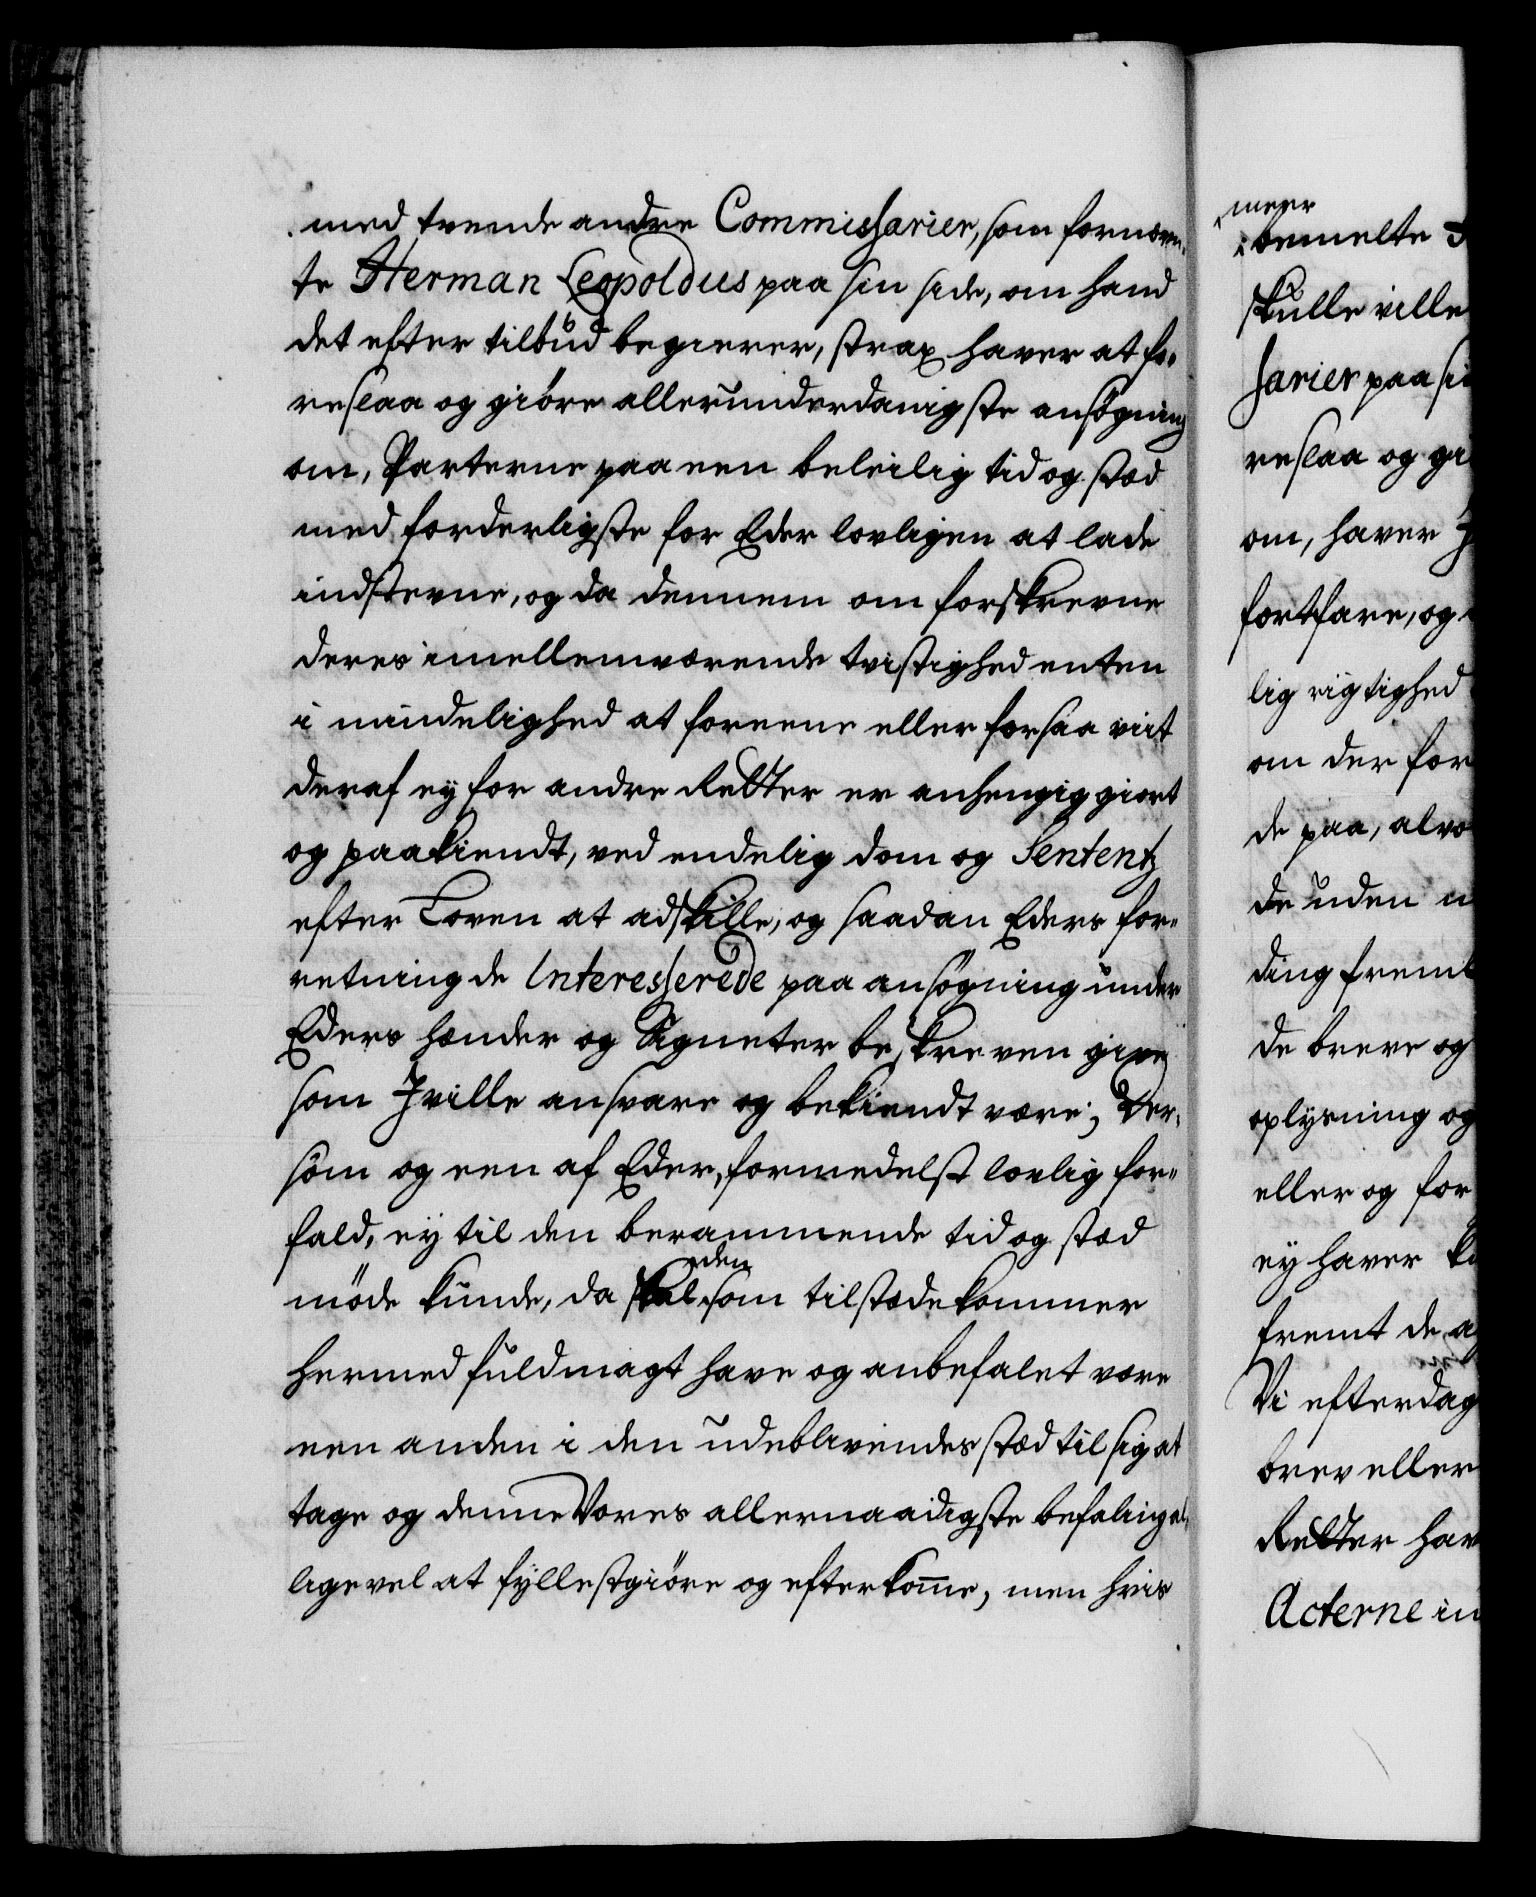 med tvende andre Commissarier, som fornævn-
te Herman Leopoldus paa sin side, om hand
det efter tilbud begierer, strax haver at fo-
reslaa og giöre allerunderdanigste ansögning
om, Parterne paa een beleilig tid og stæd
med forderligste for Eder lovligen at lade
indstevne, og da dennem om forskrevne
deres imellemværende tvistighed enten
i mindelighed at foreene eller forsaa viit
deraf ej for andre Retter er anhengig giort
og paakiendt, ved endelig dom og Sententz
efter Loven at adskille, og saadan Eders for-
retning de Interesserede paa ansögning under
Eders hænder og Signeter beskreven give
som I ville ansvare og bekiendt være; Der-
som og een af Eder, formedelst lovlig for-
fald, ej til den berammende tid og stæd
möde kunde, da skal den som tilstæde kommer
hermed fuldmagt have og anbefalet være
een anden i den udeblivendes stæd til sig at
tage og denne Vores allernaadigste befaling al-
ligevel at fyllestgiöre og efterkomme, men hvis
meer
bemelte
skulle ville
sarier paa si
reslaa og gi
om, haver I
fortfare, og
lig rigtighed
om der for
de paa, alvo
de uden
ding freml
de breve og
oplysning og
eller og for
ej haver
fremt de
Vi efterdag
brev eller
Retter hav
Acterne in